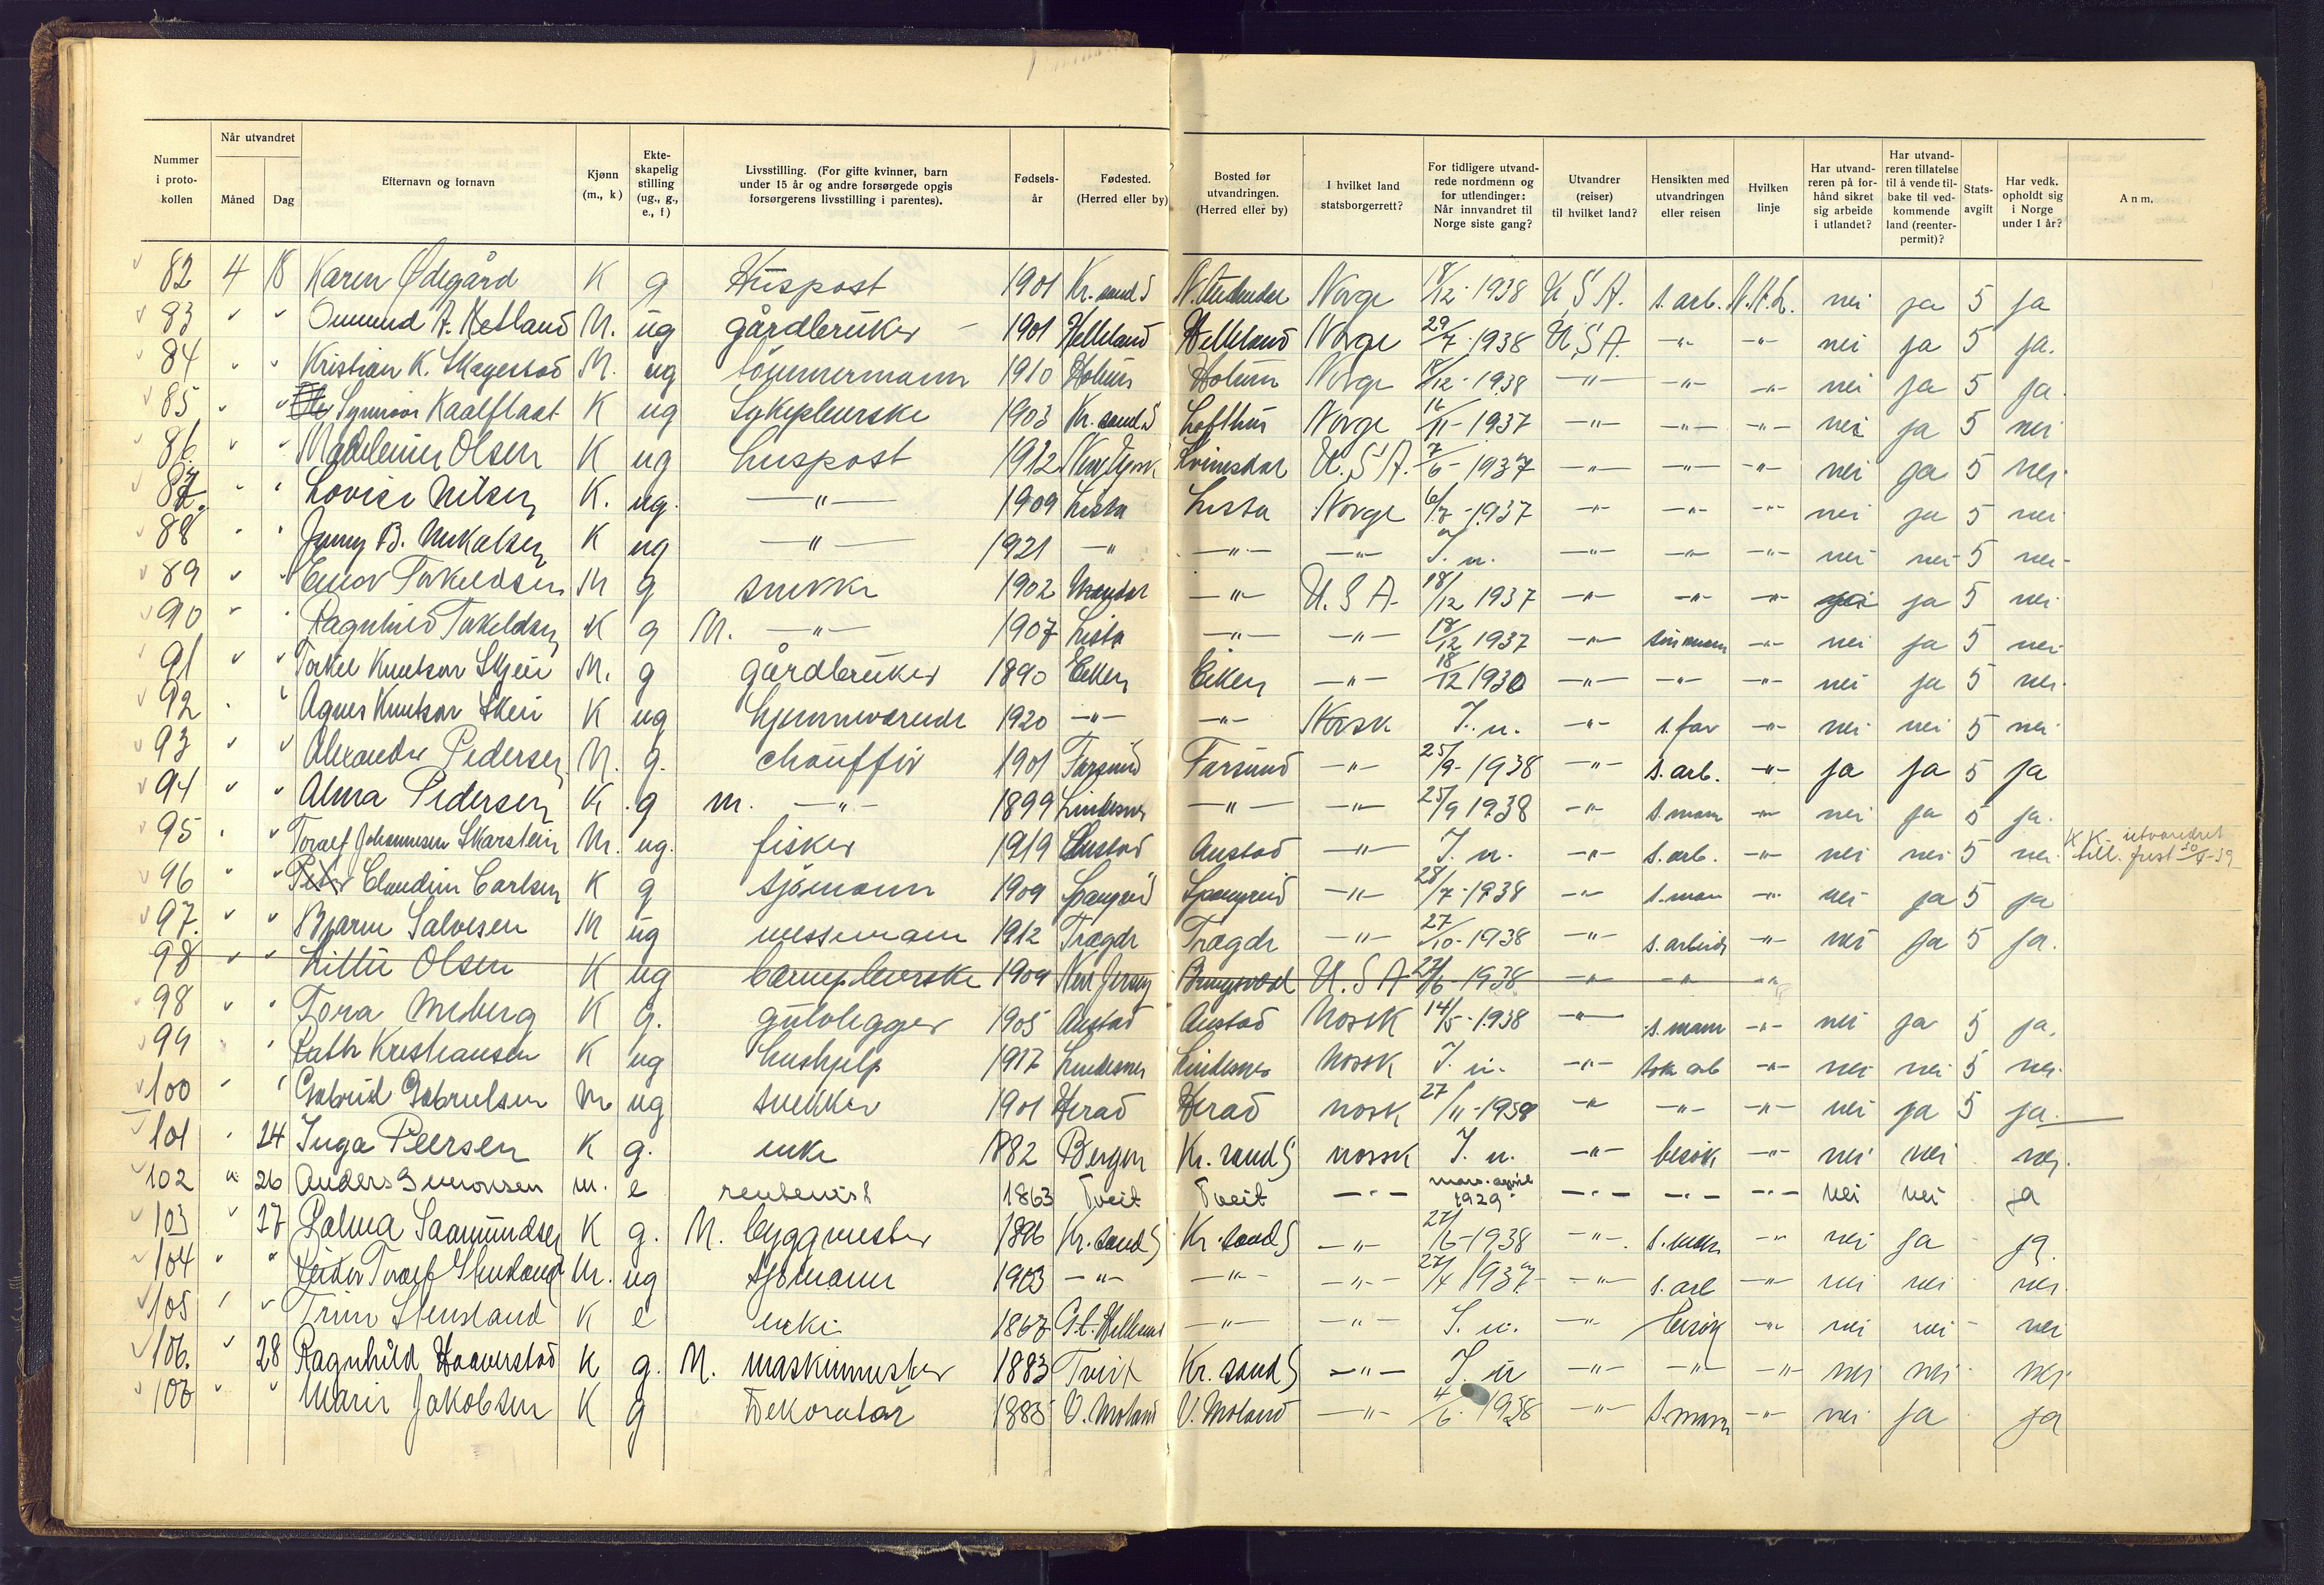 Nummer i protokollen | Når utvandret Måned | Dag | Efternavn og fornavn | Kjønn (m., k) | Ekteskapelig stilling (ug., g., e., f) | Livsstilling. (For gifte kvinner, barn under 15 år og andre forsørgede opgis forsørgerens livsstilling i parentes). | Fødselsår | Fødested. (Herred eller by) | Bosted før utvandringen. (Herred eller by) | I hvilket land statsborgerrett? | For tidligere utvandrede nordmenn og for utlendinger: Når innvandret til Norge siste gang? | Utvandrer (reiser) til hvilket land? | Hensikten med utvandringen eller reisen | Hvilken linje | Har utvandreren på forhånd sikret sig arbeide i utlandet? | Har utvandreren tillatelse til å vende tilbake til vedkommende land (reenterpermit)? | Statsavgift | Har vedk. opholdt sig i Norge under 1 år? | Anm.
82 4 18 Karen Ødegård K g Huspost 1901 Kr.sand S Norge 18/12-1938 U S A. s. arb. N.A.L. nei ja 5 ja
83 " " Omund A. Hetland M. ug gårdbruker 1901 Helleland Helleland Norge 29/7-1938 U S A. -"- -"- nei ja 5 ja.
84 " " Kristian K. M. ug tömmermann 1910 Holum Holum Norge 18/12-1938 -"- -"- -"- nei ja 5 ja.
85 " " Synnöv Kaalflaat K ug Sykepleierske 1903 Kr.sand S Lofthus Norge 12/11-1937 -"- -"- -"- nei ja 5 nei
86 " " Olsen K ug huspost 1912 New York Kvinesdal U.S A. 7/6-1937 -"- -"- -"- nei ja 5 nei
87. " " Lovise Nilsen K. ug. -"- 1909 Lista Lista Norge 6/7-1937 -"- -"- -"- nei ja 5 nei
88 " " Jenny B. Mikalsen K ug -"- 1921 -"- -"- -"- I. u. -"- -"- -"- nei nei 5 nei
89 " " Einar Torkeldsen M g snekker 1902 Mandal -"- U. S A. 18/12 1937 -"- -"- -"- nei ja 5 nei
90 " " Ragnhild Torkeldsen K g M. -"- 1907 Lista -"- -"- 18/12 1937 -"- sin mann -"- nei ja 5 nei
91 " " Torkel Knutson Skjei M. g gårdbruker 1890 Eiken Eiken -"- 18/12 1930 -"- -"- -"- nei ja 5 nei
92 " " Agnes Knutson Skei K ug hjemmeværende 1920 -"- -"- Norsk I. u. -"- s. far -"- nei nei 5 nei
93 " " Alexander Pedersen M. g. chauffør 1901 Farsund Farsund -"- 25/9-1938 -"- s. arb. -"- ja ja 5 ja
94 " " Alma Pedersen K. g m. -"- 1899 Lindesnes -"- -"- 25/9 1938 -"- s. mann -"- nei ja 5 ja.
95 " " Toralf Johannesen Skarstein M. ug. fisker 1919 Austad Austad -"- I. u. -"- s. arb. -"- nei nei 5 nei K K. utvandret till. frist 30/4-39
96 " " Peter Claudine Carlsen K g sjömann 1909 Spangreid Spangreid -"- 28/7-1938 -"- s. man -"- nei ja 5 ja
97. " " Bjarne Salvesen M ug messemann 1912 Tregde Tregde -"- 27/10-1938 -"- s. arbeid -"- nei ja 5 ja.
98 " " Olsen K ug barnepleierske 1909 New Jersey U. S A 27/6-1938 -"- -"- -"-
98 " " Tora Meberg K g. gulvlegger 1905 Austad Austad Norsk 14/5-1938 -"- s. mann -"- nei ja 5 ja.
99 " " Ruth Kristiansen K ug hushjelp 1917 Lindesnes Lindesnes Norsk I. u. -"- söke arb -"- nei nei 5 nei
100 " " Gabriel Gabrielsen M ug snekker 1901 Herad Herad norsk 27/11-1938 -"- -"- -"- nei ja 5 ja.
101 " 24 Inga Peersen K g. enke 1882 Bergen Kr. sand S norsk I. u. -"- besök -"- nei nei nei.
102 " 26 Anders Simonsen m. e rentenist 1863 Tveit Tveit -"- mars-april 1929. -"- -"- -"- nei nei ja
103 " 27 Palma Saamundsen K g. M. byggmester 1896 Kr.sand S Kr.sand S -"- 22/6-1938 -"- s. mann -"- nei ja ja.
104 " " Toralf M. ug sjömann 1903 -"- -"- -"- 27/4 1937 -"- s. arb -"- nei nei nei.
105 " " Trine Stensland K e enke 1867 -"- -"- I. u. -"- besök -"- nei nei nei
106. " 28 Ragnhild Haaverstad K g. M. maskinmester 1883 Tveit Kr. sand S -"- I. u -"- -"- -"- nei nei nei
107 " " Marie Jakobsen K g Dekoratör 1885 V. Moland V. Moland -"- 4/6-1938 -"- s. mann -"- nei ja ja